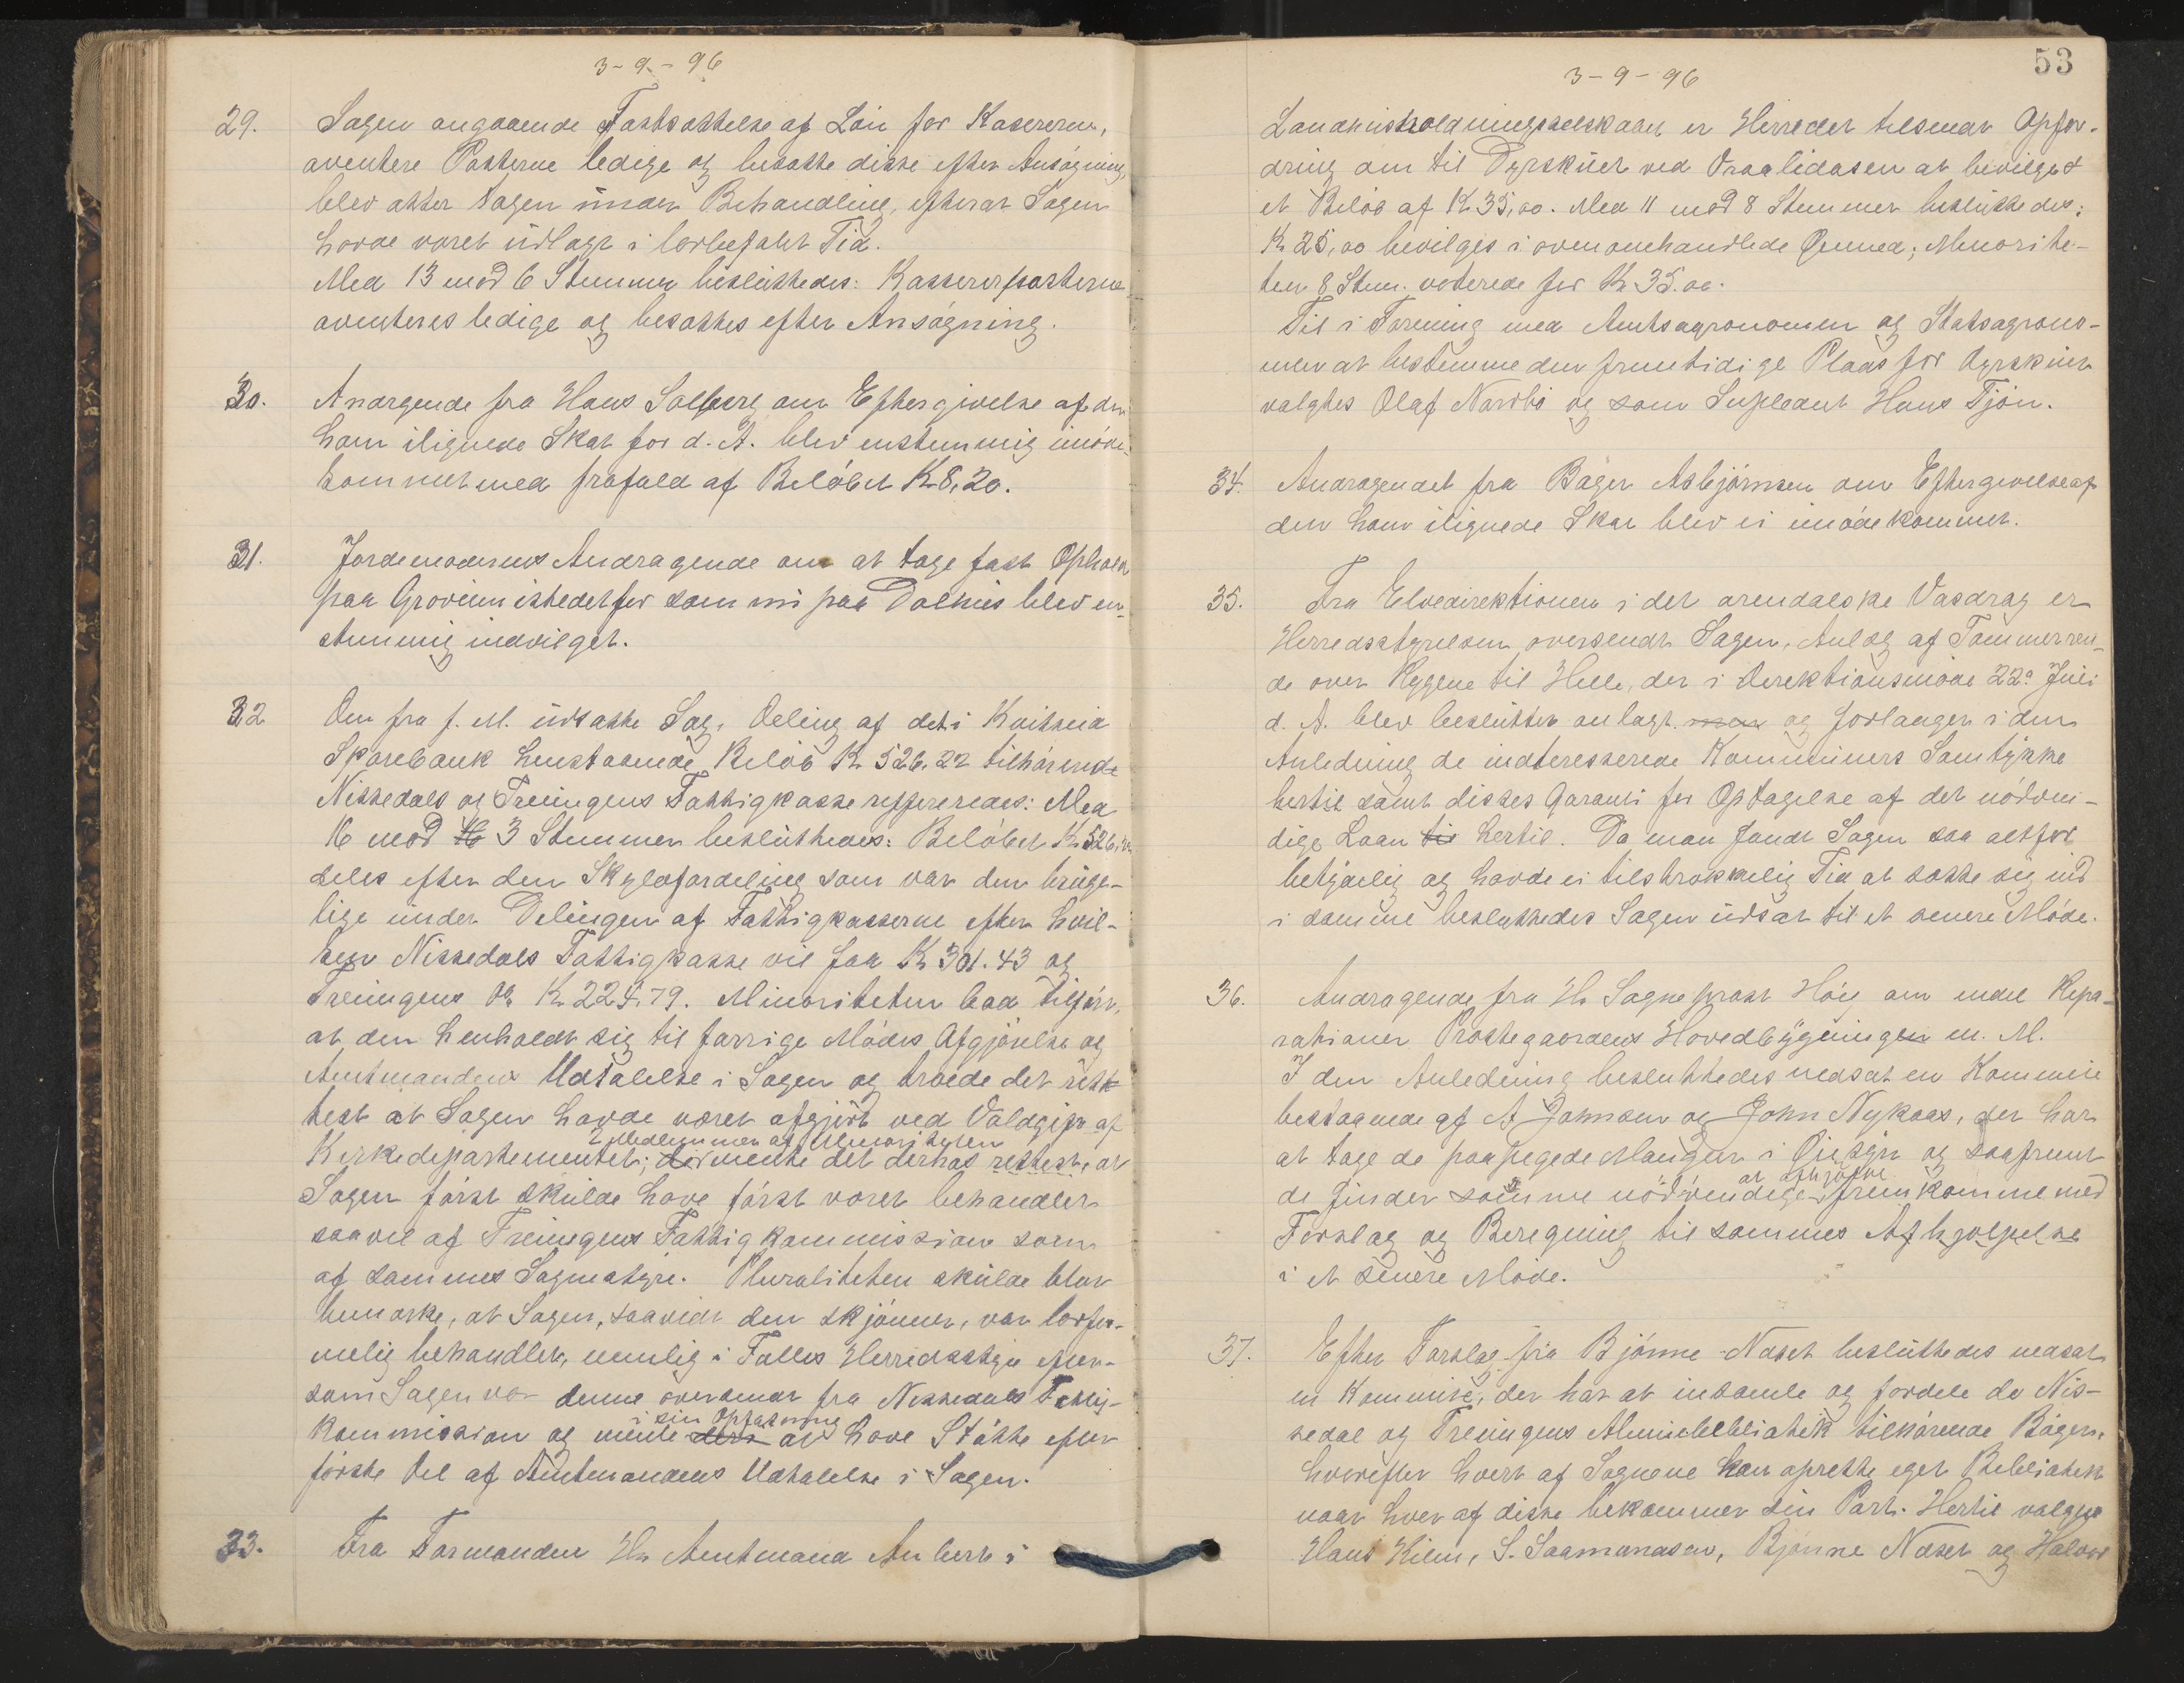 3-9-96
29. Sagen angaaende Fastsættelse af Løn for Kasererne,
avertere Posterne ledige og besætte disse efter Ansøgning,
blev atter tagen under Behandling, efterat Sagen
havde været udlagt i lovbefalet Tid.
Med 13 mod 6 Stemmer besluttedes: Kassererposterne
averteres ledige og besættes efter Ansøgning.
30. Andragende fra Hans Solberg om Eftergivelse af den
ham ilignede Skat for d. A. blev enstemmig imøde-
kommet med frafald af Beløbet Kr 8,20.
31. Jordemoderens Andragende om at tage fast Ophold
paa Groveum istedetfor som nu paa Dalhus blev en-
stemmig indvilget.
32 Den fra f. M. udsatte Sag, Deling af det i Kvitseid
Sparebank henstaaende Beløb Kr 526.22 tilhørende
Nissedals og Treungens Fattigkasse reffereredes: Med
16 mod 16 3 Stemmer besluttedes: Beløbet Kr 526,22
deles efter den Skyldfordeling som var den bruge-
lige under Delingen af Fattigkasserne efter hvil-
ken Nissedals Fattigkasse vil faa Kr 301.43 og
Treungens do Kr 224.79. Minoriteten bad tilført,
at den henholdt sig til forrige Mødes Afgjørelse og
Amtmandens Udtalelse i Sagen og troede det rett
test at Sagen havde været afgjort ved Voldgift af
2 Medlemmer af Minoriteten
Kirkedepartementet; der mente det derhos rettest, at
Sagen først skulde have først været behandlet
saavel af Treungens Fattigkommission som
af sammes Sognestyre. Pluraliteten skulde blot
bemærke, at Sagen, saavidt den skjønner, var lovfor-
melig behandlet, nemlig i Fælles Herredsstyre efter-
som Sagen var denne oversendt fra Nissedals Fattig-
i sin Opfatning
kommission og mente dens at have Støtte efter
første Del af Amtmandens Udtalelse i Sagen.
33. Fra Formanden Hr Amtmand Aubert i
53
3-9-96
Landhusholdningsselskabet er Herredet tilsendt Opfor-
dring om til Dyrskuet ved Vraalidosen at bevilget
et Beløb af Kr 35,00. Med 11 mod 8 Stemmer besluttedes:
Kr 25,00 bevilges i ovenomhandlede Øiemed; Minorite-
ten 8 Stem. voterede for Kr 35.00.
Til i Forening med Amtsagronomen og Statsagrono-
men at bestemme den fremtidige Plads for Dyrskuet
valgtes Olaf Nordbø og som Supleant Hans Tjøn.
34. Andragendet fra Bager Asbjørnsen om Eftergivelse af
den ham ilignede Skat blev ei imødekommet.
35. Fra Elvedirektionen i det arendalske Vasdrag er
Herredsstyrelsen oversendt Sagen, Anlæg af Tømmerren-
de over Rygene til Helle, der i Direktionsmøde 22de Juli
d. A. blev besluttet anlagt og forlanger i den
Anledning de indteresserede Kommuners Samtykke
hertil samt disses Garanti for Optagelse af det nødven-
dige Laan til hertil. Da man fandt Sagen saa altfor
betydelig og havde ei tilstrækkelig Tid at sætte sig ind
i samme besluttedes Sagen udsat til et senere Møde.
36. Andragende fra Hr Sogneprest Høie om endel Repa-
rationer Prestegaardens Hovedbygningen m. M.
I den Anledning besluttedes nedsat en Kommite
bestaaende af A Johnsen og John Nykaas, der har
at tage de paapegede Mangler i Øiesyn og saafremt
at afhjælpe
de finder samme nødvendige fremkomme med
Forslag og Beregning til sammes Afhjælpelse
i et senere Møde.
37. Efter Forslag fra Bjønne Næset besluttedes nedsat
en Kommite, der har at indsamle og fordele de Nis-
sedal og Treungens Almuebibliothek tilhørende Bøger,
hvorefter hvert af Sognene kan oprette eget Bibliothek
naar hver af disse bekommer sin Part. Hertil valgtes
Hans Kilen, S. Saamundsen, Bjønne Næset og Halvor